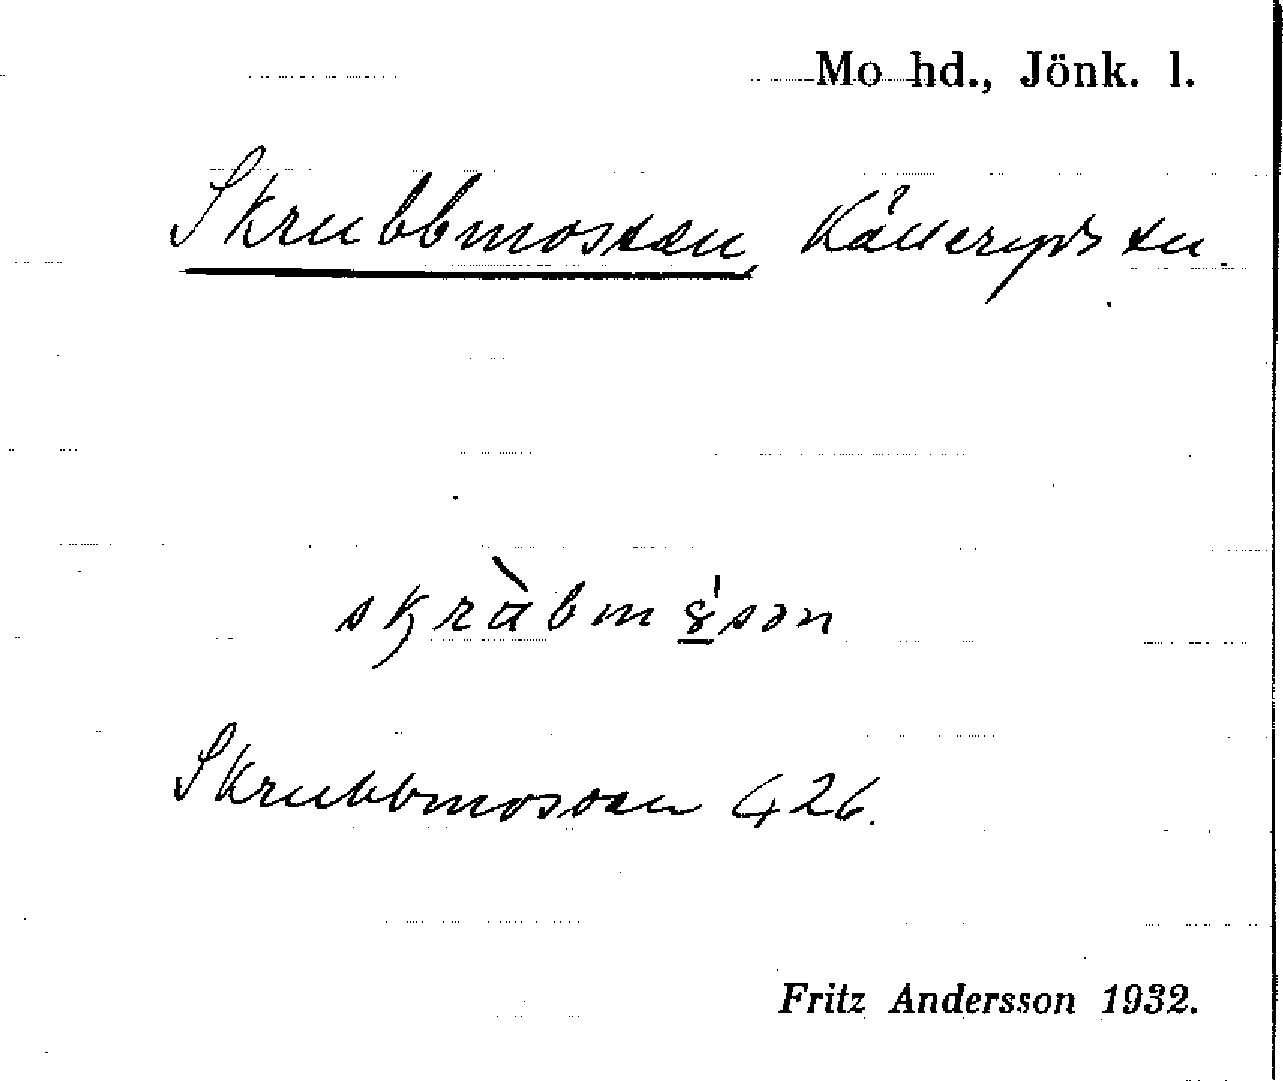 Mo hd., Jönk. l.
Skrubbmossen, Källeryds sn.
skràbm s̲on
Skrubbmossen 426.
Fritz Andersson 1932.